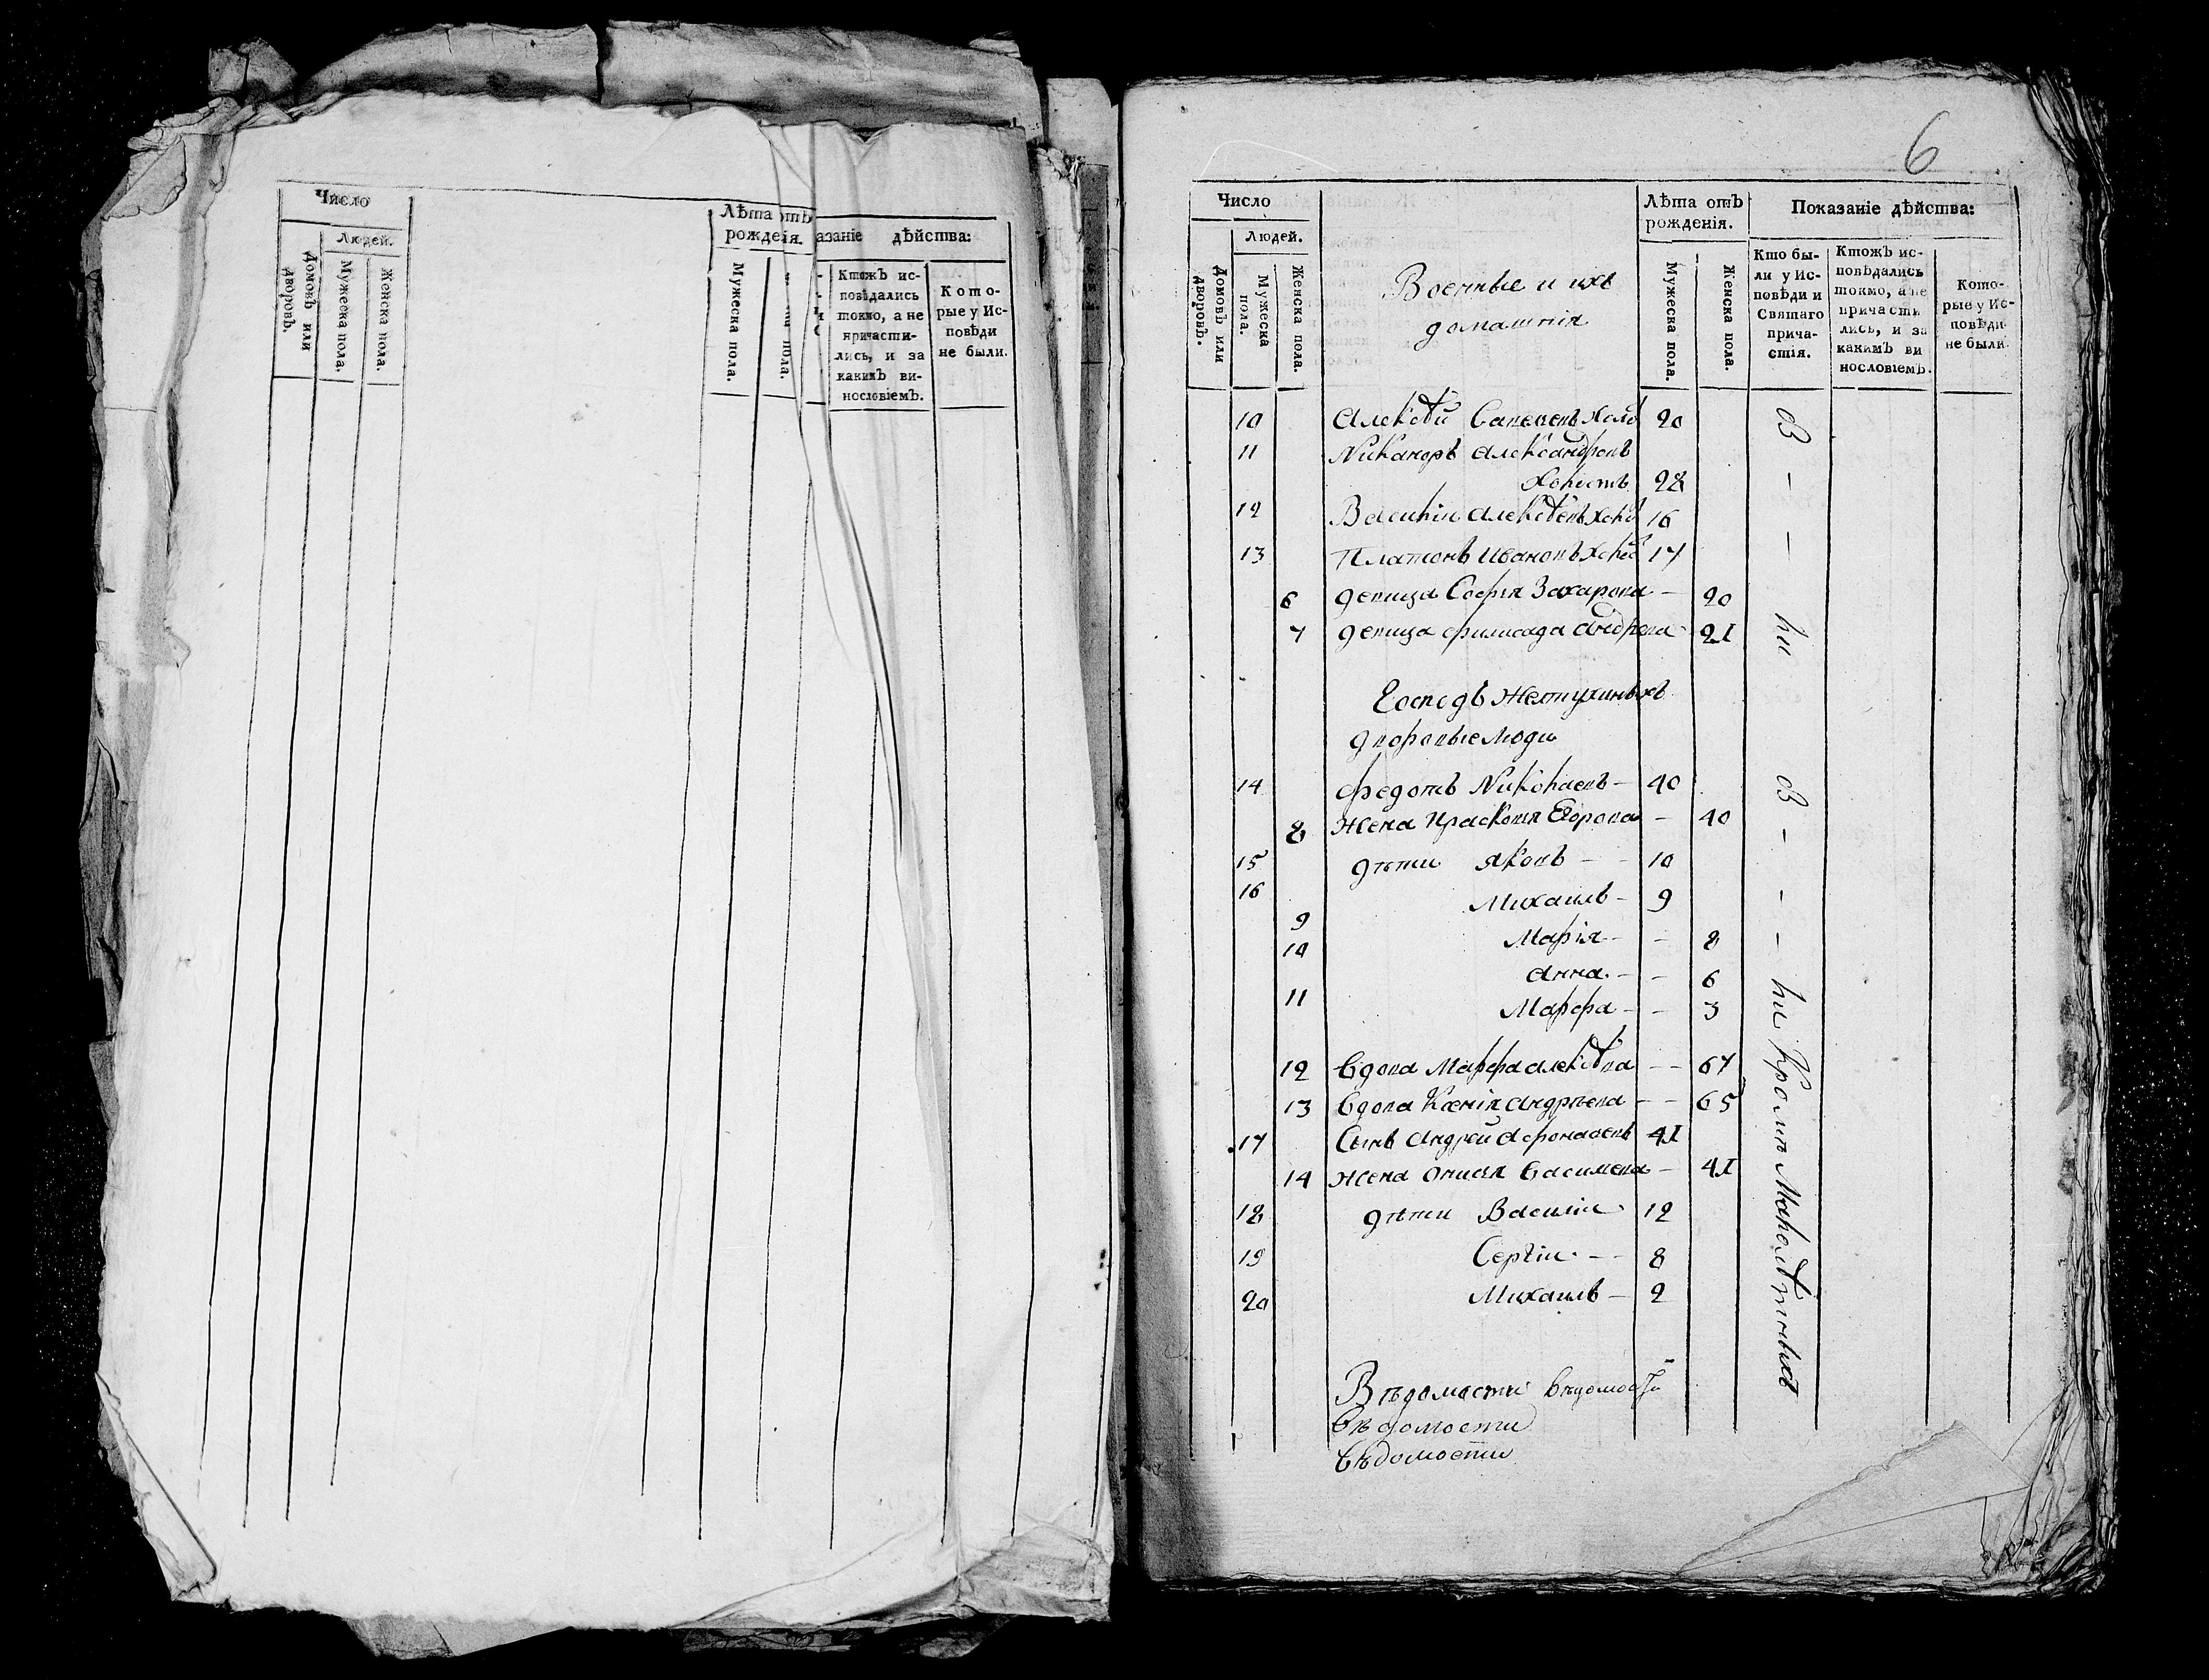 Число
Людей.
Домовъ или дворовъ.
Мужеска пола.
Женска пола.
Лѣта отъ
рожденія.
Мужеска пола.
пола.
азаніе дѣйства:
Ктожъ ис-
повѣдались
токмо, а не
причасти-
лись, и за
какимъ ви-
нословіемъ.
Кото-
рые у Ис-
повѣди
не были.
6
Число
Людей.
Домовъ или дворовъ.
Мужеска пола.
Женска пола.
Военные и ихъ
домашнія
Лѣта отъ
рожденія.
Мужеска пола.
Женска пола.
Показаніе дѣйства:
Кто бы-
ли у Ис-
повѣди и
Святаго
прича-
стія.
Ктожъ ис-
повѣдались
токмо, а не
причасти
лись, и за
какимъ ви
нословіемъ.
Кото-
рые у Ис-
повѣди
не были.
10 Алексѣй 20
11 Никаноръ Александровъ
Холостъ 28
12 Василій Алексѣевъ 16
13 Платонъ Ивановъ 17
6 Девица Софія Захарова - 20
7 Девица Филисада Андреева 21
Господъ Желтухиныхъ
дворовые люди
14 Федотъ Николаевъ - 40
8 Жена Прасковія Егорова - 40
15 дѣти Яковъ - - 10
16 Михаилъ - 9
9 Марія - - 8
10 Анна - - 6
11 Марфа - - 3
12 Вдова Марфа Алексѣева - - 67
13 Вдова Ксенія Андрѣева - - 65
17 Сынъ Андрей Афонасевъ 41
14 Жена Онисія Васильева - 41
18 дѣти Василіи 12
19 Сергіи - - 8
20 Михаилъ - 2
Б - - ли
Б - - - ли Кромѣ Малолѣтныхъ
Вѣдомости вѣдомости
вѣдомости
вѣдомости